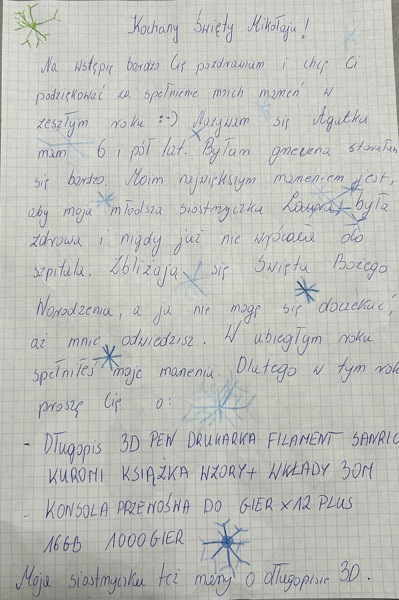 Kochany Święty Mikołaju!
Na wstępie bardzo Cię pozdrawiam i chcę Ci
podziękować za spełnienie moich marzeń w
zeszłym roku :-) Nazywam się Agatka
mam 6 i pół lat. Byłam grzeczna starałam
się bardzo. Moim największym marzeniem jest,
aby moja młodsza siostrzyczka Laura, była
zdrowa i nigdy już nie wróciła do
szpitala. Zbliżają się Święta Bożego
Narodzenia, a ja nie mogę się doczekać,
aż mnie odwiedzisz. W ubiegłym roku
spełniłeś moje marzenia. Dlatego w tym rok
proszę Cię o:
- DŁUGOPIS 3D PEN DRUKARKA FILAMENT SANRIO
KUROMI KSIĄŻKA WZORY+ WKŁADY 30M
- KONSOLA PRZENOŚNA DO GIER X12 PLUS
16GB 1000GIER
Moja siostrzyczka też marzy o długopisie 3D.